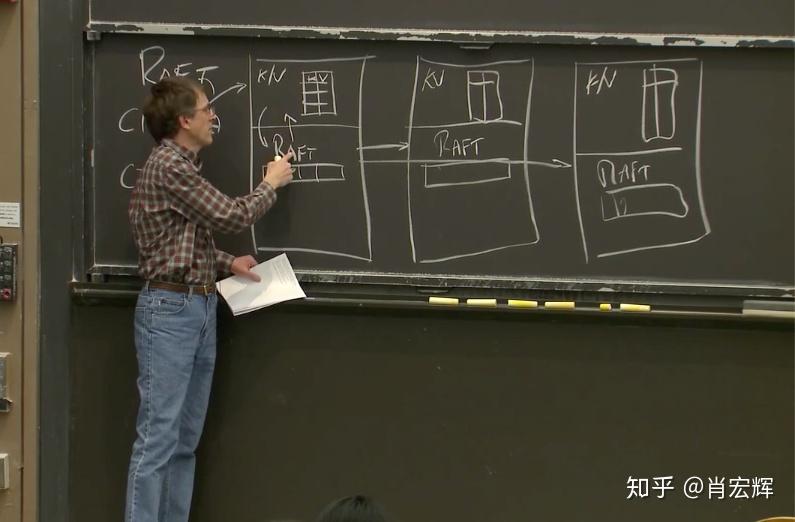 RAFT
K/V
K V
RAFT
KV
RAFT
K/V
RAFT
知乎 @肖宏辉